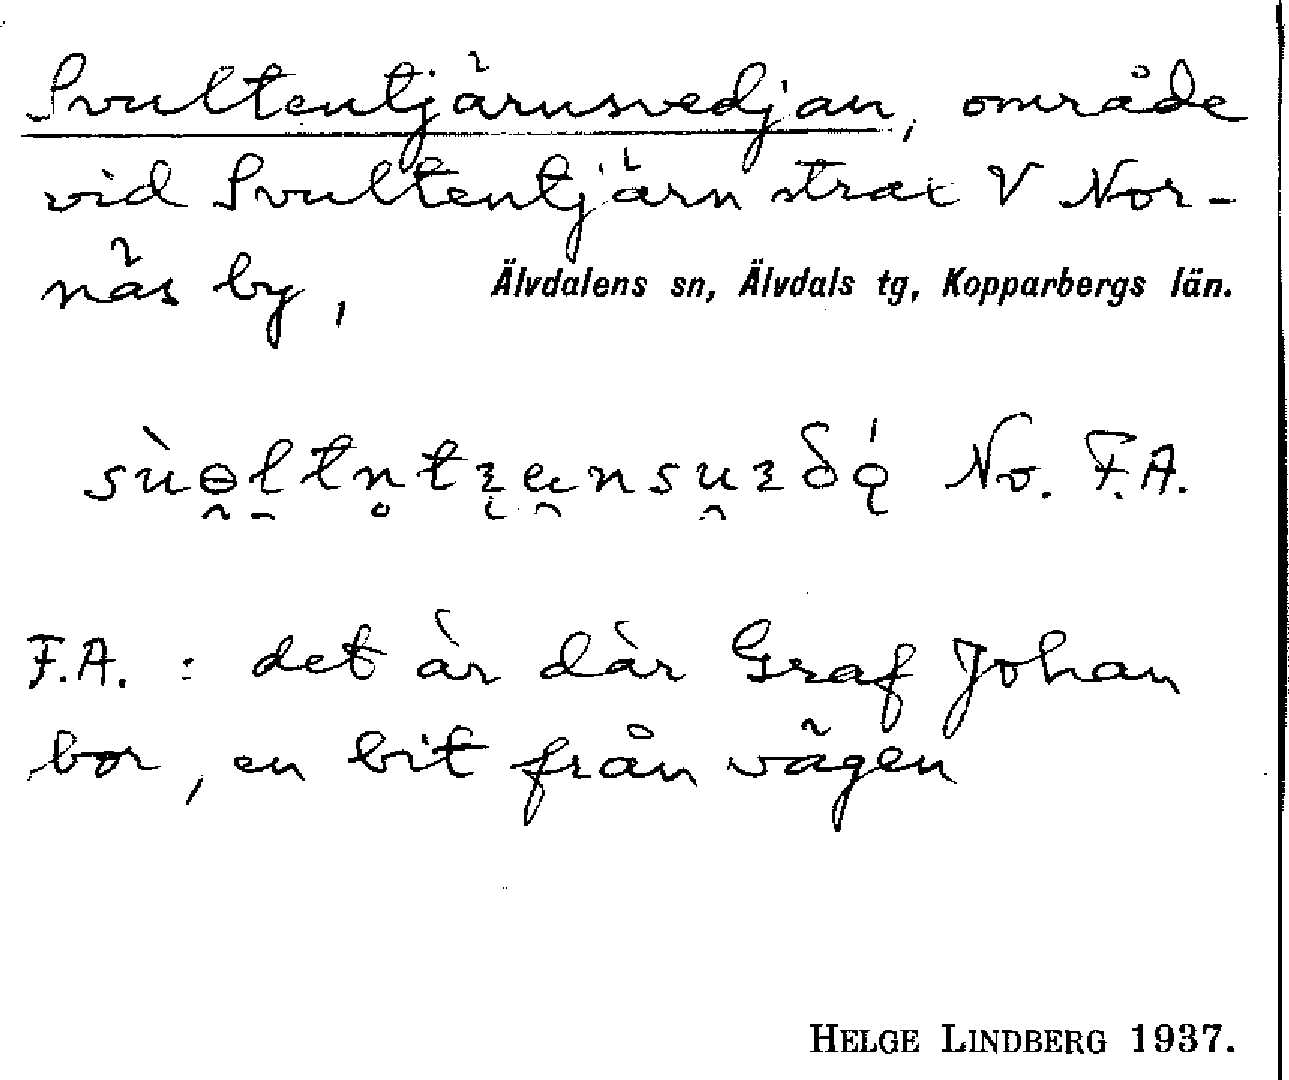 Svultentjärnsvedjan, område
vid Svultentjärn strax V Nor-
näs by, Älvdalens sn, Älvdals tg, Kopparbergs län.
No. F.A.
F.A. : det är där Graf Johan
bor, en bit från vägen
HELGE LINDBERG 1937.